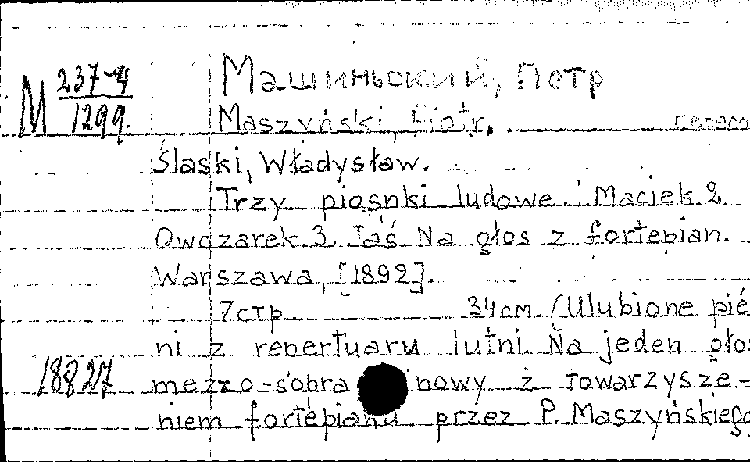 М 237-4/1299.
Машиньский, Петр
Maszyński Piotr.
Ślaski, Władysław.
Trzy piosnki ludowe. Maciek 2.
Owczarek 3. Jaś Na głos z fortepian.
Warszawa, [1892].
7стр 34см (Ulubione pié
ni z repertuaru lutni Na jeden głos
18827
mezzo-sopra nowy z towarzysze-
niem fortepianu przez P. Maszyńskiego